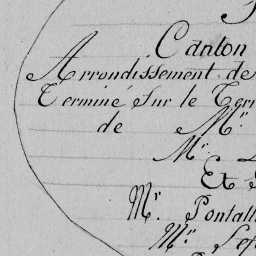 Canton
Arrondissement de
Terminé sur le Terr
de Mr.
Mr.
Et
Mr. Pontall
Mr.